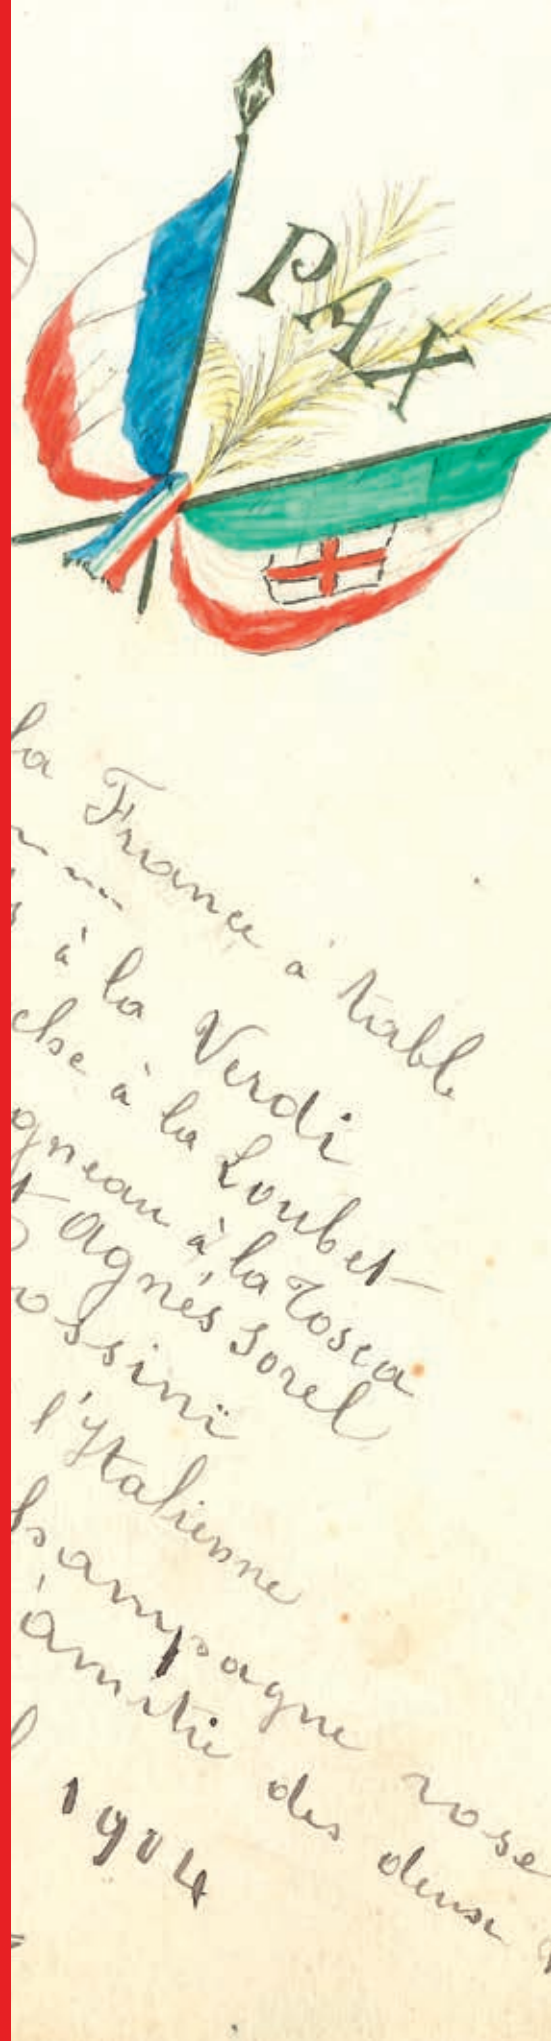 PAX
la France à table
à la Verdi
che à la Loubet
gneau à la Tosca
t Agnès Sorel
ossini
l'Italienne
hampagne rose
amitié des deux
1904